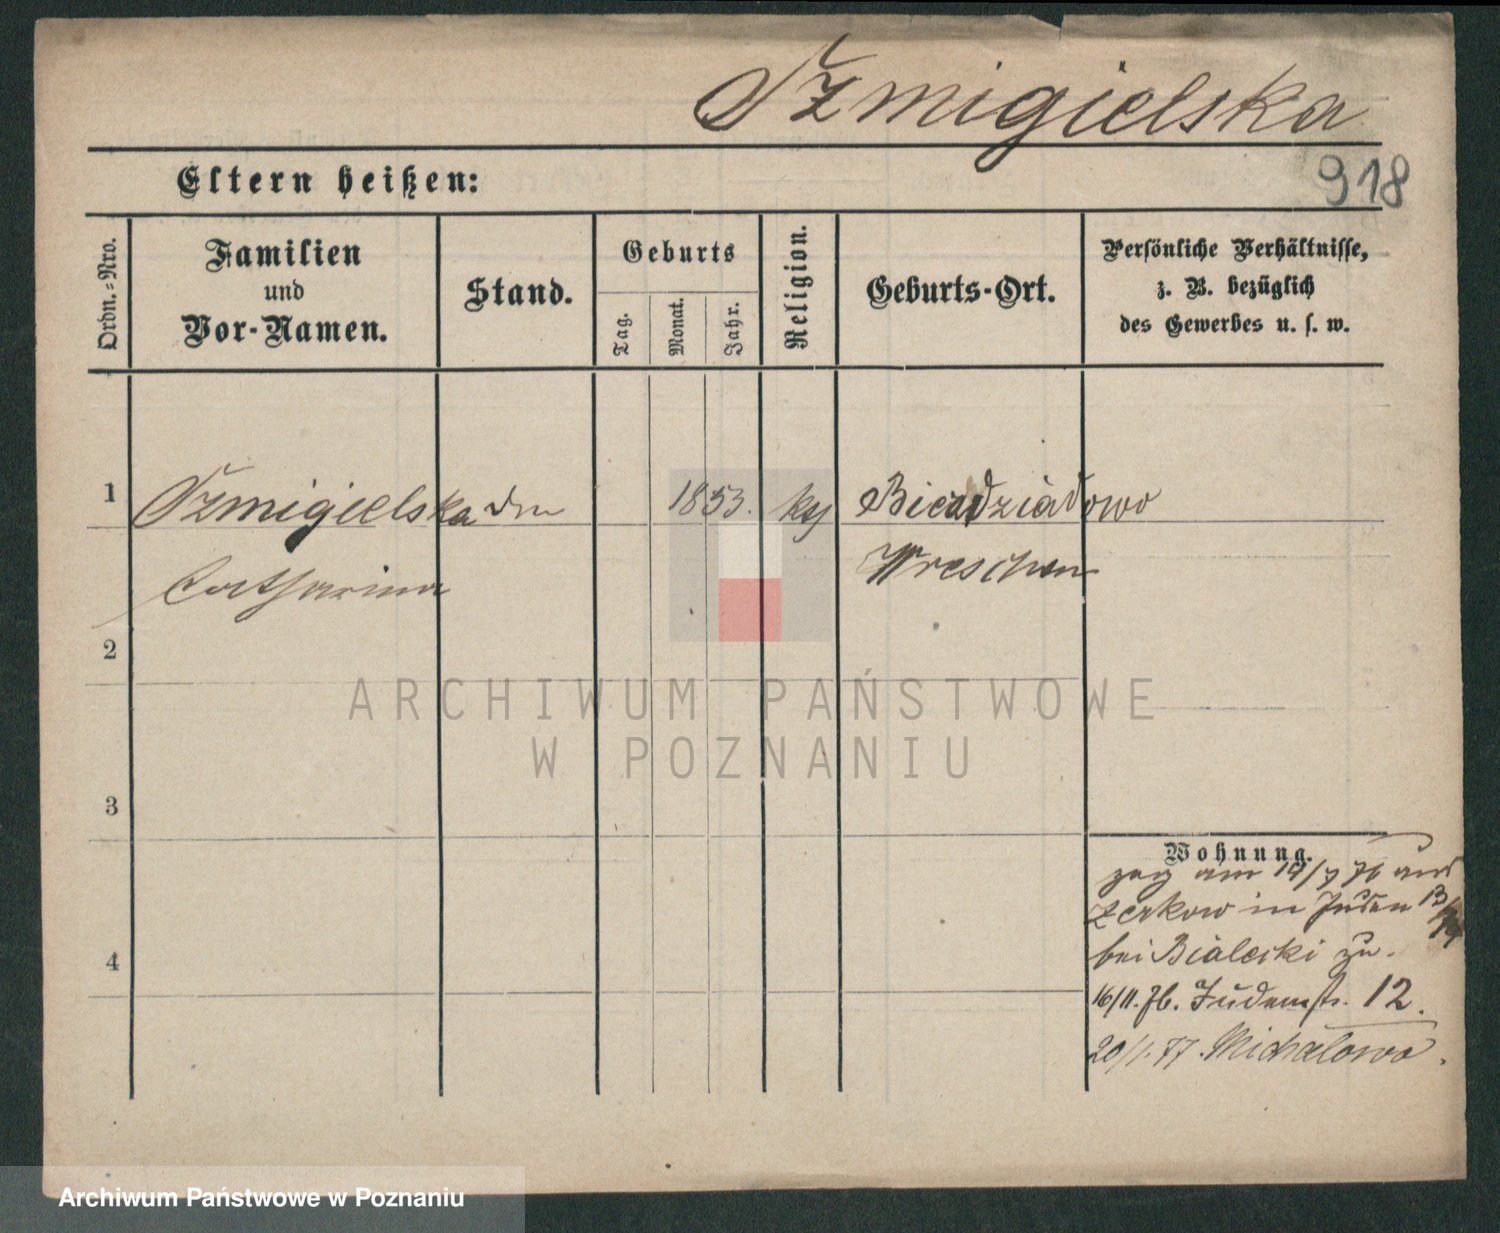 Szmigielska
918
Eltern heißen:
Ordn.-Nro.
Familien
und
Vor-Namen.
Stand.
Geburts
Tag.
Monat.
Jahr.
Religion.
Geburts-Ort.
Persönliche Verhältnisse,
z. B. bezüglich
des Gewerbes u. s. w.
1
Szmigielska
1853.
Catharina
Wreschen
2
ARCHIWUM PAŃSTWOWE
W POZNANIU
3
Wohnung.
zog am 19/7 76 aus
Zerkow in Juden
bei Bialecki zu.
4
16/11. 76. Judenstr. 12.
20/1. 77. Michalowo.
Archiwum Państwowe w Poznaniu